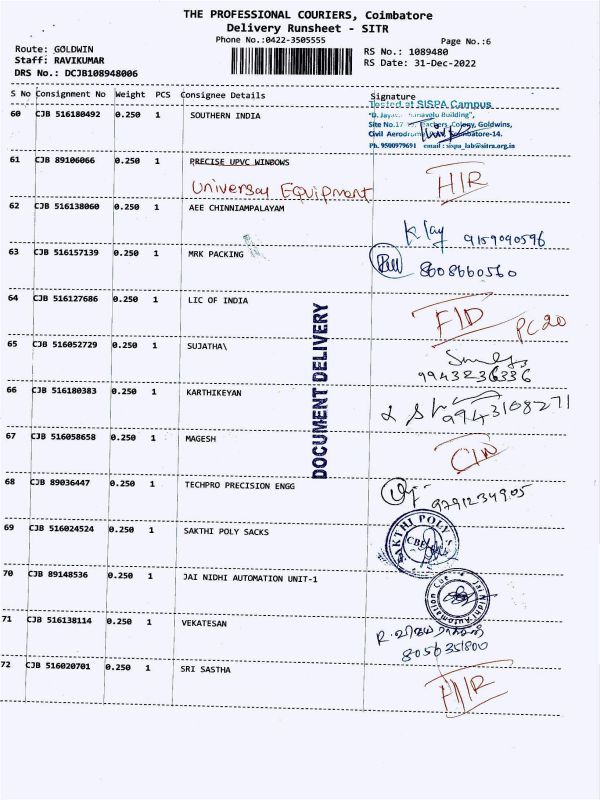 THE PROFESSIONAL COURIERS, Coimbatore
Delivery Runsheet - SITR
Phone No.:0422-3505555
Page No.:6
Route: GOLDWIN
Staff: RAVIKUMAR
DRS No.: DCJB108948006
RS No.: 1089480
RS Date: 31-Dec-2022
S No Consignment No Weight PCS Consignee Details Signature
60 CJB 516180492 0.250 1 SOUTHERN INDIA
Tested at SISPA Campus
Building",
Site No.17 Teachers Colony, Goldwins,
Civil Aerodrome Coimbatore-14.
Ph. 9500979691 email : sispa_lab@sitra.org.in
61 CJB 89106066 0.250 1 PRECISE UPVC WINDOWS
Universal Equipment
62 CJB 516138060 0.250 1 AEE CHINNIAMPALAYAM
9159090596
63 CJB 516157139 0.250 1 MRK PACKING
8608660560
64 CJB 516127686 0.250 1 LIC OF INDIA
PC20
65 CJB 516052729 0.250 1 SUJATHA\
9943236336
66 CJB 516180383 0.250 1 KARTHIKEYAN
9943108271
67 CJB 516058658 0.250 1 MAGESH
DOCUMENT DELIVERY
68 CJB 89036447 0.250 1 TECHPRO PRECISION ENGG
9791234905
69 CJB 516024524 0.250 1 SAKTHI POLY SACKS
SAKTHI POLY
CBE
70 CJB 89148536 0.250 1 JAI NIDHI AUTOMATION UNIT-1
Jai Nidhi Automation Cbe
71 CJB 516138114 0.250 1 VEKATESAN
8056351800
72 CJB 516020701 0.250 1 SRI SASTHA